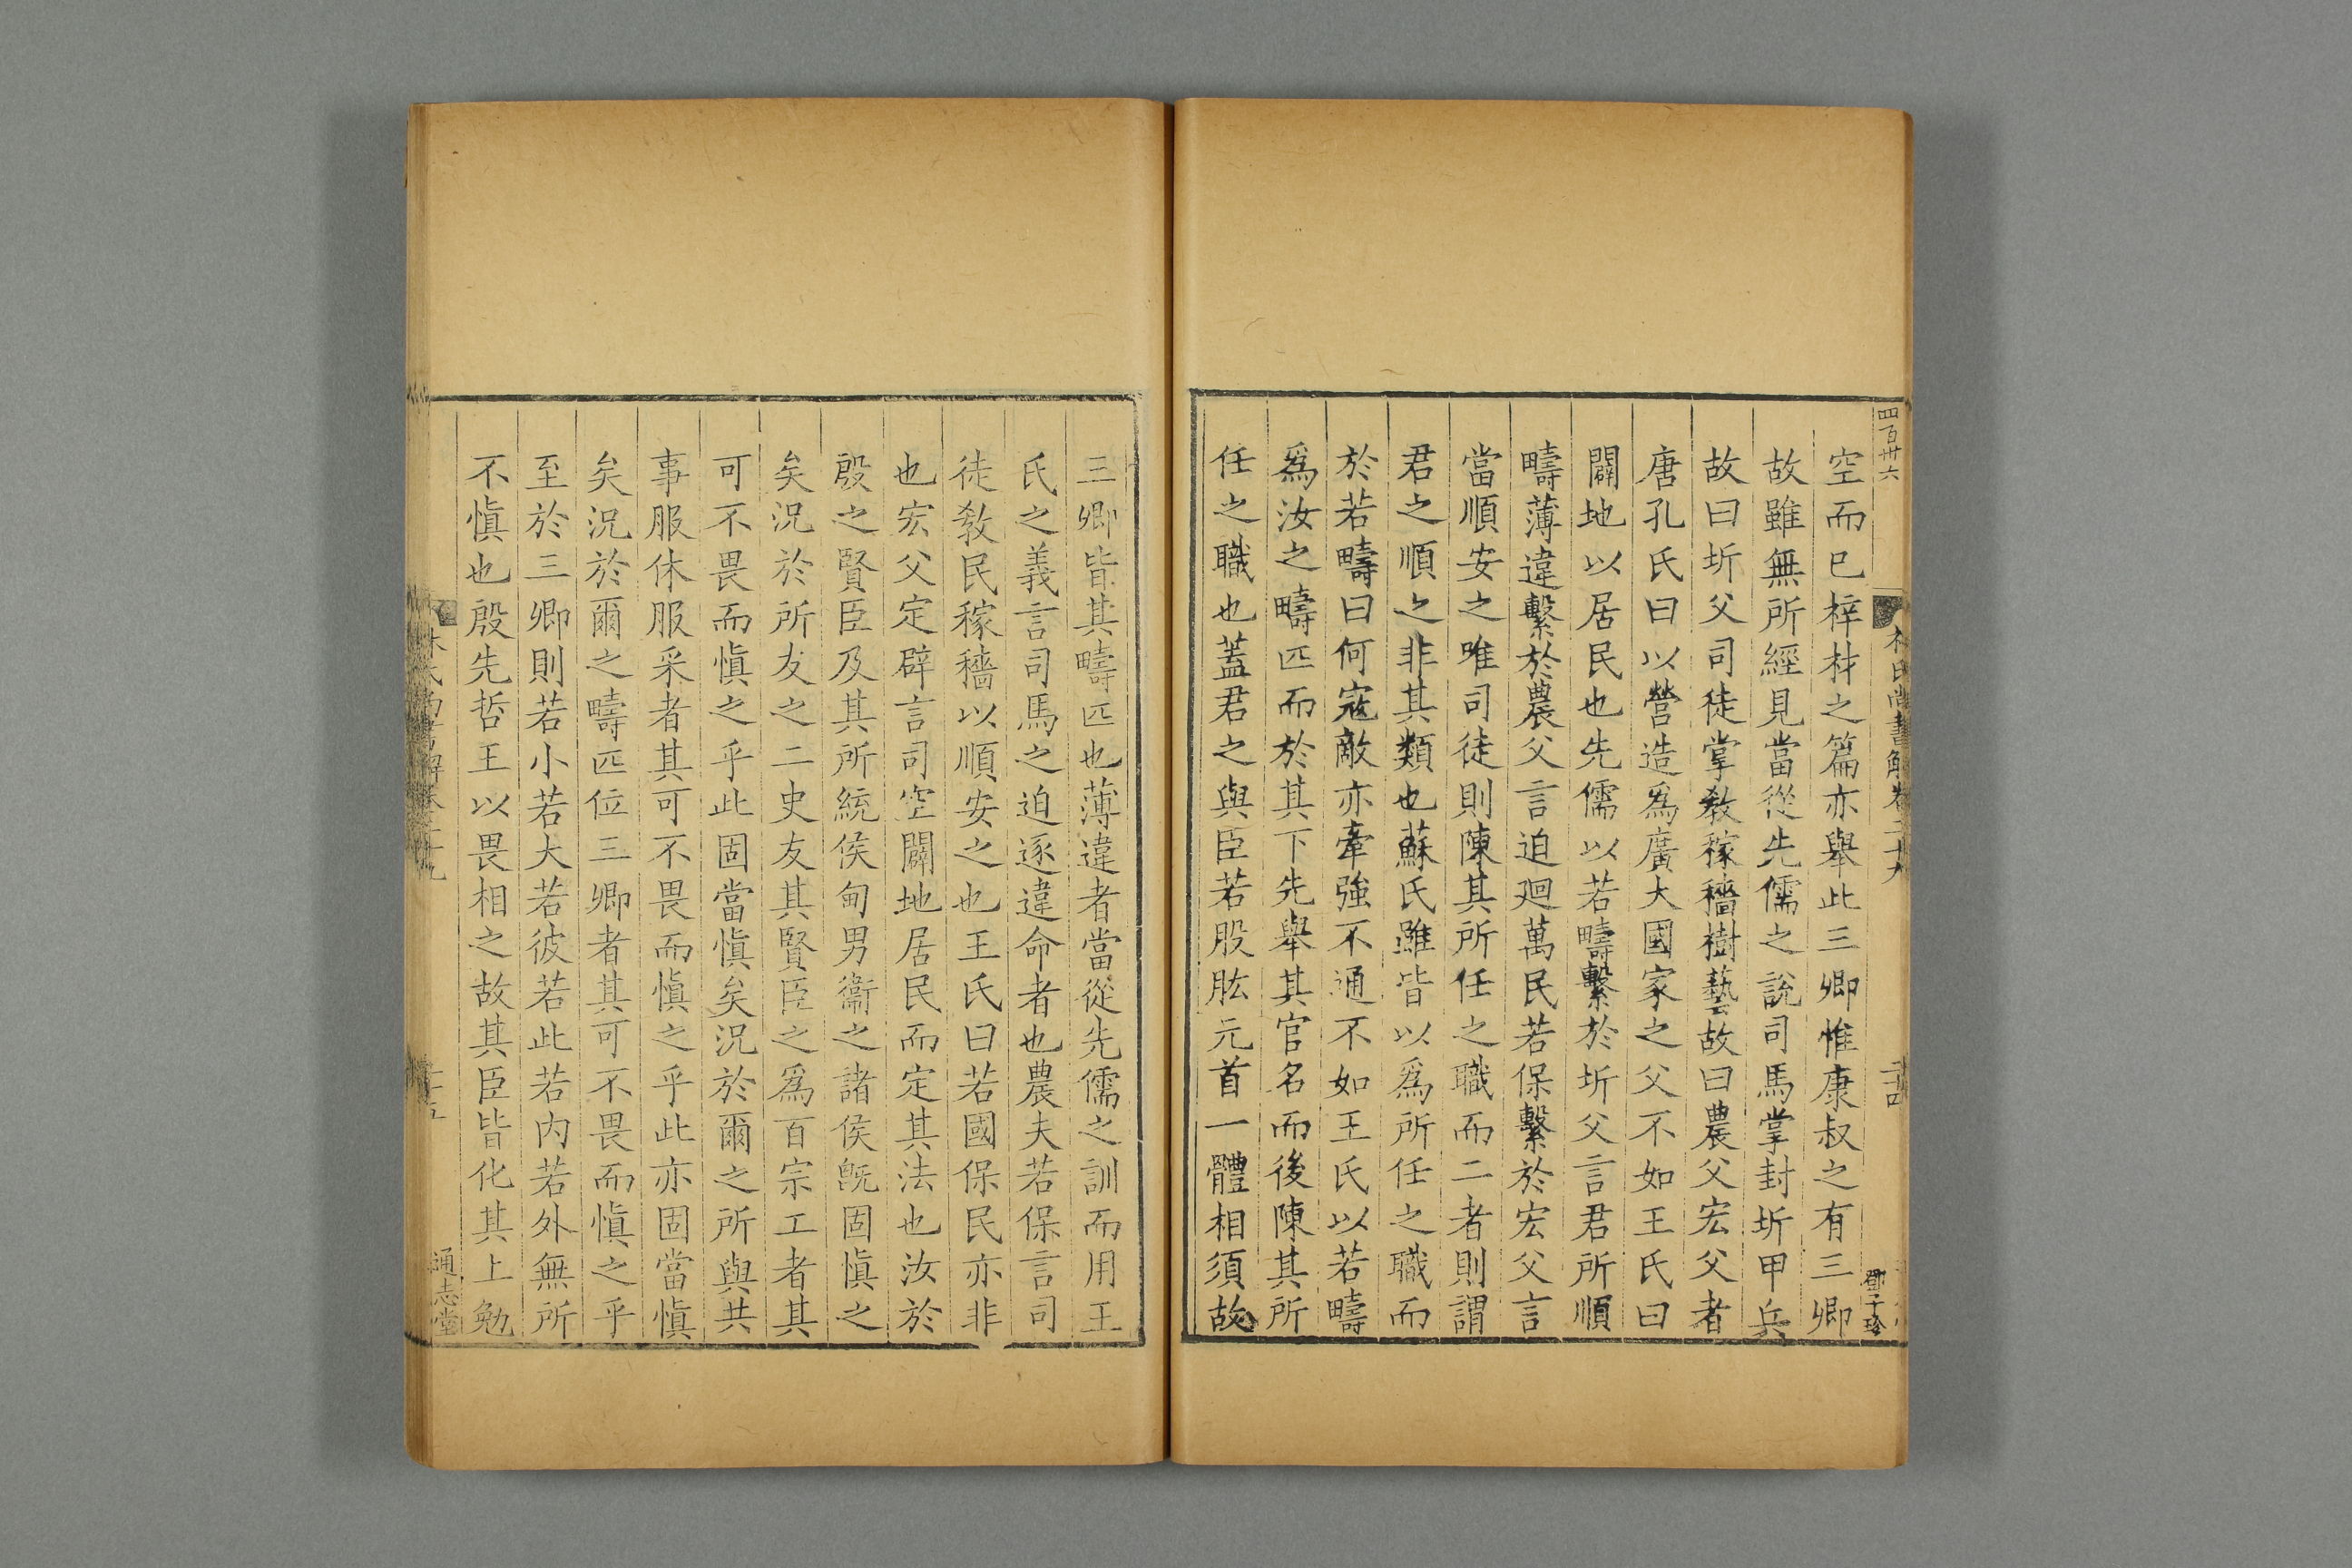 四百卅六
林氏尚書解卷二十九
鄧子珍
空而已梓材之篇亦舉此三卿惟康叔之有三卿
故雖無所經見當從先儒之說司馬掌封圻甲兵
故曰圻父司徒掌敎稼穡樹藝故曰農父宏父者
唐孔氏曰以營造爲廣大國家之父不如王氏曰
闢地以居民也先儒以若疇繫於圻父言君所順
疇薄違繫於農父言迫迴萬民若保繫於宏父言
當順安之唯司徒則陳其所任之職而二者則謂
君之順之非其類也蘇氏雖皆以爲所任之職而
於若疇曰何寇敵亦牽強不通不如王氏以若疇
爲汝之疇匹而於其下先舉其官名而後陳其所
任之職也蓋君之與臣若股肱元首一體相須故
三卿皆其疇匹也薄違者當從先儒之訓而用王
氏之義言司馬之迫逐違命者也農夫若保言司
徒敎民稼穡以順安之也王氏曰若國保民亦非
也宏父定辟言司空闢地居民而定其法也汝於
殷之賢臣及其所統侯甸男衞之諸侯旣固愼之
矣況於所友之二史友其賢臣之爲百宗工者其
可不畏而愼之乎此固當愼矣況於爾之所與共
事服休服采者其可不畏而愼之乎此亦固當愼
矣況於爾之疇匹位三卿者其可不畏而愼之乎
至於三卿則若小若大若彼若此若内若外無所
不愼也殷先哲王以畏相之故其臣皆化其上勉
通志堂